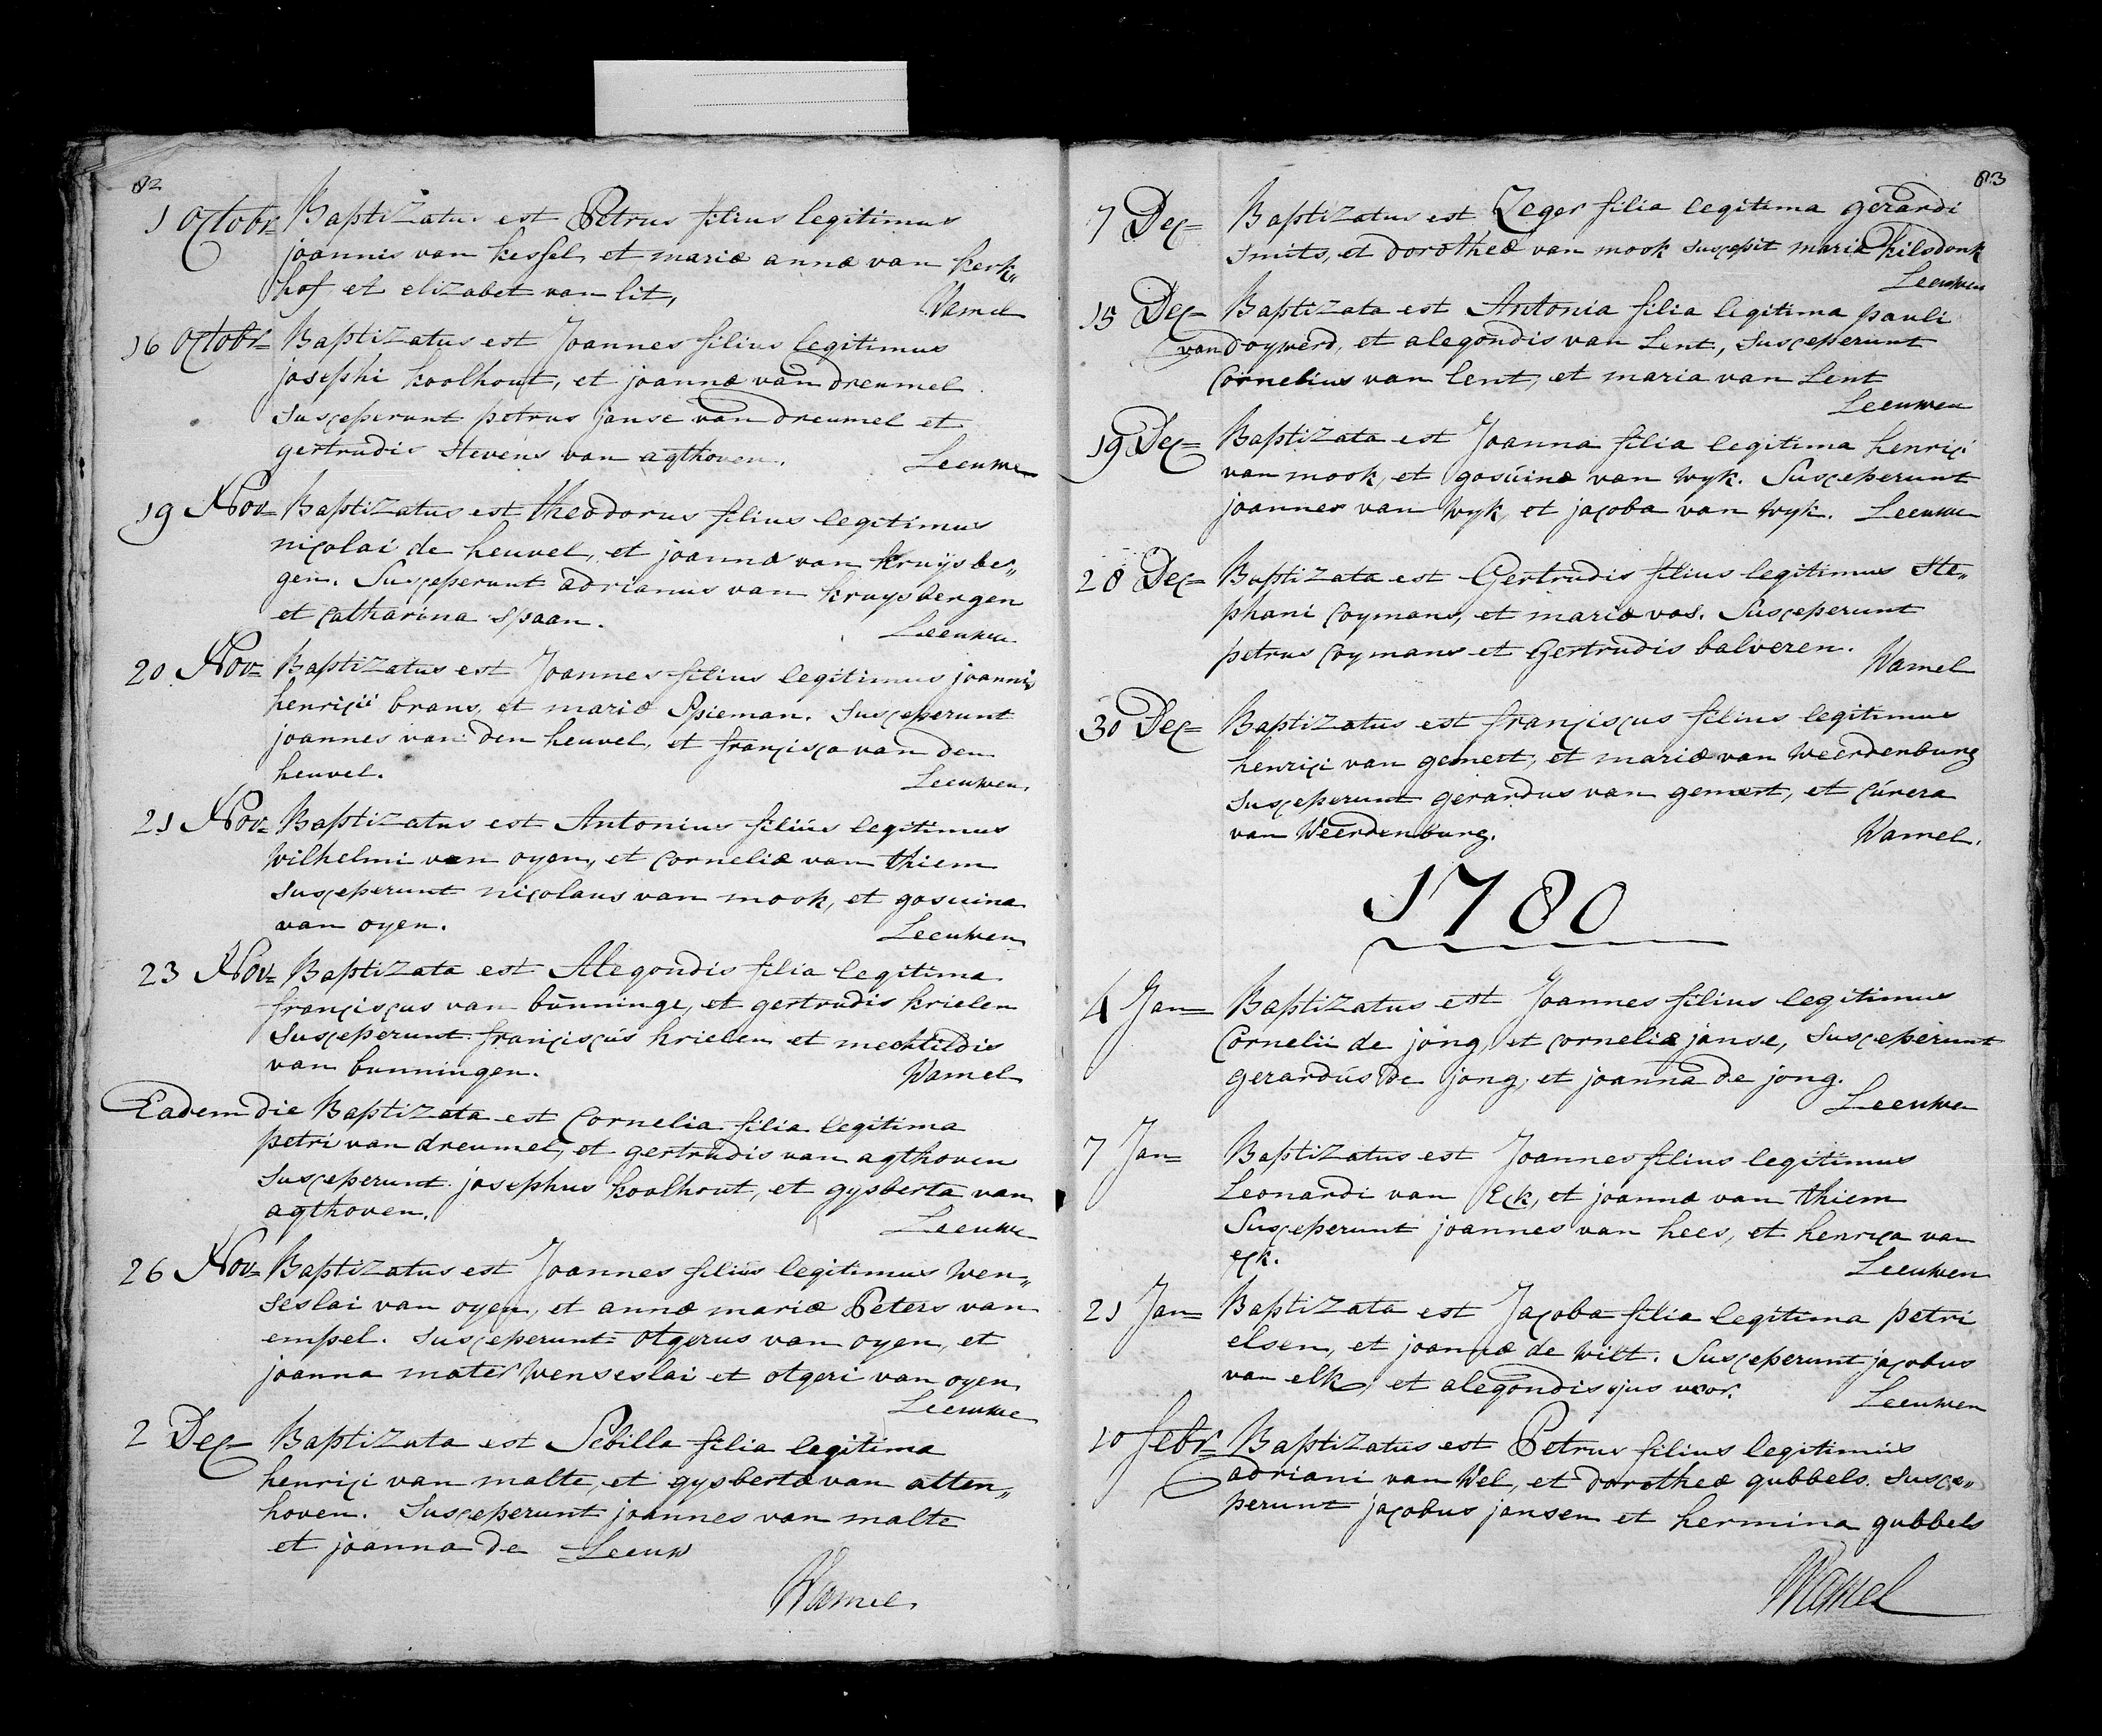 82
1 Octobr= Baptizatus est Petrus filius legitimus
joannis van kessel et mariæ annæ van kerk„
hof et elizabet van lit,
Wamel
16 Octobr= Baptizatus est Joannes filius legitimus
josephi koolhout, et joannæ van dreumel
Susceperunt petrus janse van dreumel et
gertrudis Stevens van agthoven. Leeuwe
19 Nov= Baptizatus est theodorus filius legitimus
nicolai de heuvel, et joannæ van kruijsber„
gen. Susceperunt adrianus van kruysbergen
et Catharina Spaan. Leeuwe
20 Nov= Baptizatus est Joannes filius legitimus joannis
henricii brans, et mariæ Spieman. Susceperunt
joannes van den heuvel, et francisca van den
heuvel. Leeuwen
21 Nov= Baptizatus est Antonius filius legitimus
Wilhelmi van oyen, et Corneliæ van thiem
Susceperunt nicolaus van mook, et gosuina
van oyen. Leeuwen
23 Nov= Baptizata est Alegondis filia legitima
franciscus van bunninge, et gertrudis krielen
Susceperunt franciscus krielen et mechtildis
van bunningen. Wamel
Eadem die Baptizata est Cornelia filia legitima
petri van dreumel, et gertrudis van agthoven
Susceperunt josephus koolhout, et gysberta van
agthoven. Leeuwe
26 Nov= Baptizatus est Joannes filius legitimus Wen„
seslai van oyen, et annæ mariæ Peters van
empel. Susceperunt otgerus van oyen, et
joanna mater Wenseslai et otgeri van oyen
Leeuwe
2 Dec= Baptizata est Sebilla filia legitima
henrici van malte, et gysbertæ van atten„
hoven. Susceperunt joannes van malte
et joanna de Leeuw
Wamel
83
7 Dec= Baptizatus est Zeger filia legitima gerardi
Smits, et dorotheæ van mook suscepit maria hilsdonk
Leeuwen
15 Dec= Baptizata est Antonia filia legitima pauli
van doywerd, et alegondis van Lent, Susceperunt
Cornelius van lent, et maria van Lent
Leeuwen
19 Dec= Baptizata est Joanna filia legitima henrici
van mook, et gosuinæ van wyk. Susceperunt
joannes van wyk, et jacoba van wyk. Leeuwe
28 Dec= Baptizata est Gertrudis filius legitimus Ste„
phani Coymans, et mariæ vos. Susceperunt
petrus Coymans et Gertrudis balveren.
Wamel
30 Dec= Baptizatus est franciscus filius legitimus
henrici van gemert, et mariæ van Weerdenburg
Susceperunt gerardus van gemert, et Cunera
van Weerdenburg. Wamel.
1780
4 Jan= Baptizatus est Joannes filius legitimus
Cornelii de jong, et corneliæ janse, Susceperunt
gerardus de jong, et joanna de jong.
Leeuwe
7 Jan= Baptizatus est Joannes filius legitimus
Leonardi van Eck, et joannæ van thiem
Susceperunt joannes van hees, et henrica van
eck. Leeuwen
21 Jan= Baptizata est Jacoba filia legitima petri
elsen, et joannæ de Wilt. Susceperunt jacobus
van elk, et alegondis ejus uxor. Leeuwen
10 febr= Baptizatus est Petrus filius legitimus
adriani van Wel, et dorotheæ gubbels. Susce„
perunt jacobus jansen et hermina gubbels
Wamel